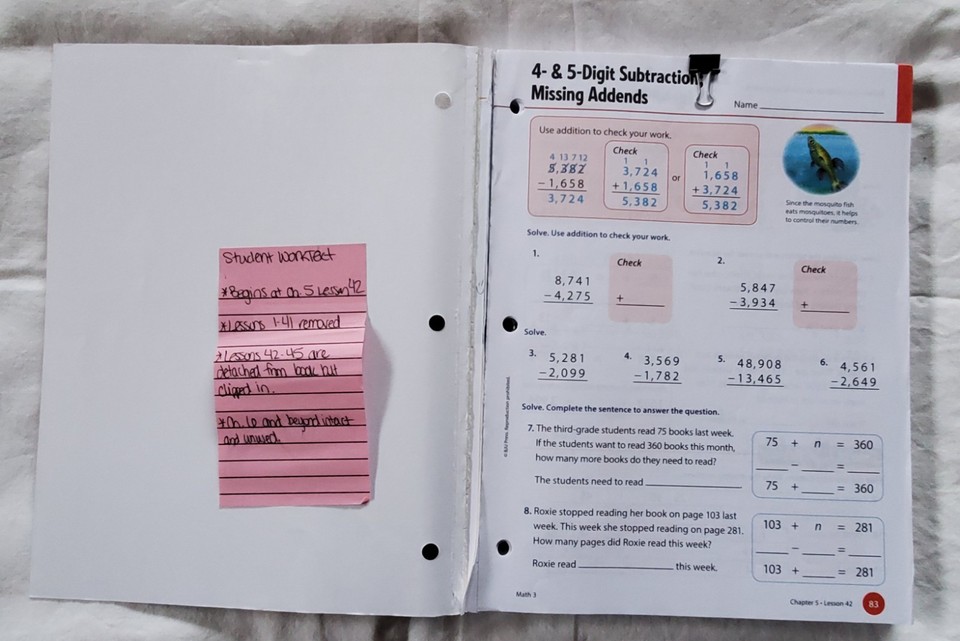 Student Worktext
*Begins at Ch. 5 Lesson 42
*Lessons 1-41 removed
*Lessons 42-45 are
detached from book but
clipped in.
*Ch. 6 and beyond intact
and unused.
4- & 5-Digit Subtraction;
Missing Addends
Name
Use addition to check your work.
4 13 7 12
5,382
- 1,658
3,724
Check
1 1
3,724
+ 1,658
5,382
or
Check
1 1
1,658
+ 3,724
5,382
Since the mosquito fish
eats mosquitoes, it helps
to control their numbers.
Solve. Use addition to check your work.
1.
8,741
- 4,275
Check
+
2.
5,847
- 3,934
Check
+
Solve.
3. 5,281
- 2,099
4. 3,569
- 1,782
5. 48,908
- 13,465
6. 4,561
- 2,649
Solve. Complete the sentence to answer the question.
7. The third-grade students read 75 books last week.
If the students want to read 360 books this month,
how many more books do they need to read?
The students need to read
75 + n = 360
- =
75 + = 360
8. Roxie stopped reading her book on page 103 last
week. This week she stopped reading on page 281.
How many pages did Roxie read this week?
Roxie read this week.
103 + n = 281
- =
103 + = 281
© BJU Press. Reproduction prohibited.
Math 3
Chapter 5 • Lesson 42
83